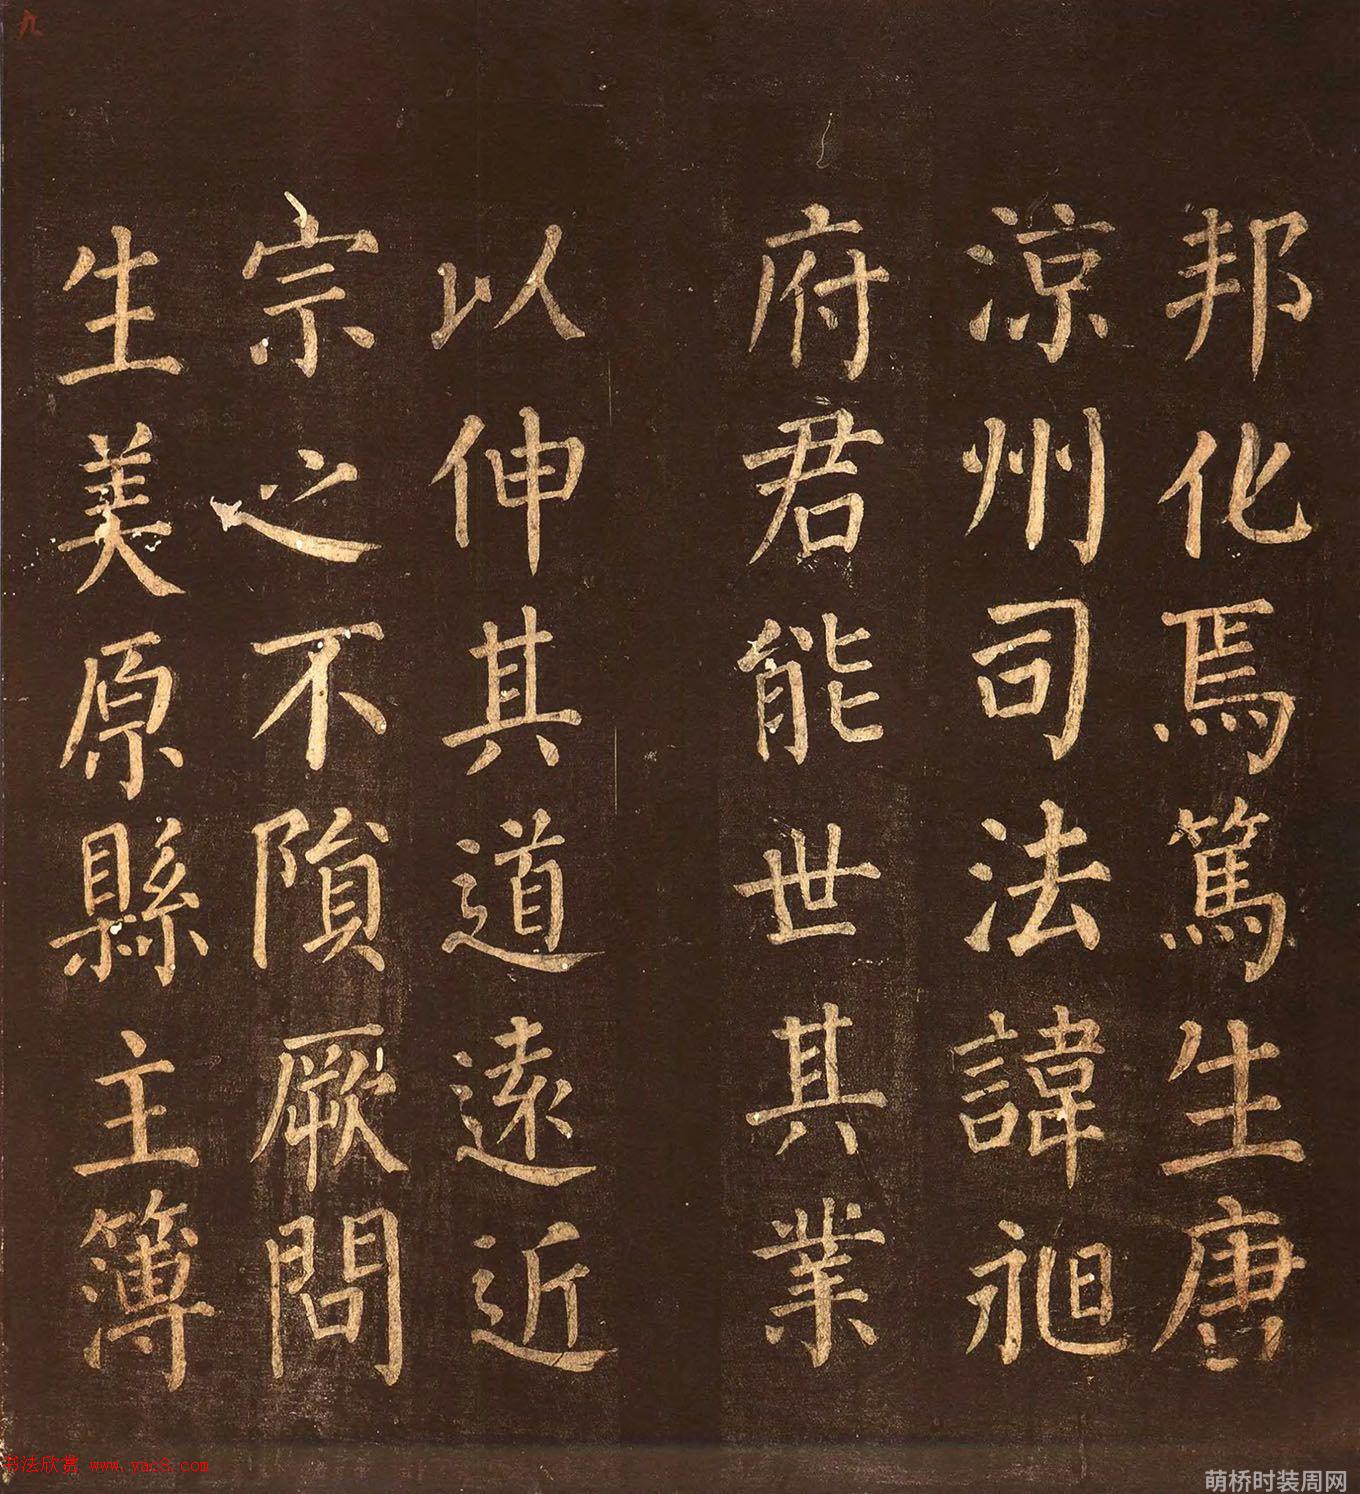 九
邦化焉篤生唐
涼州司法諱昶
府君能世其業
以伸其道遠近
宗之不隕厥問
生美原縣主簿
书法欣赏 www.yac8.com
萌桥时装周网